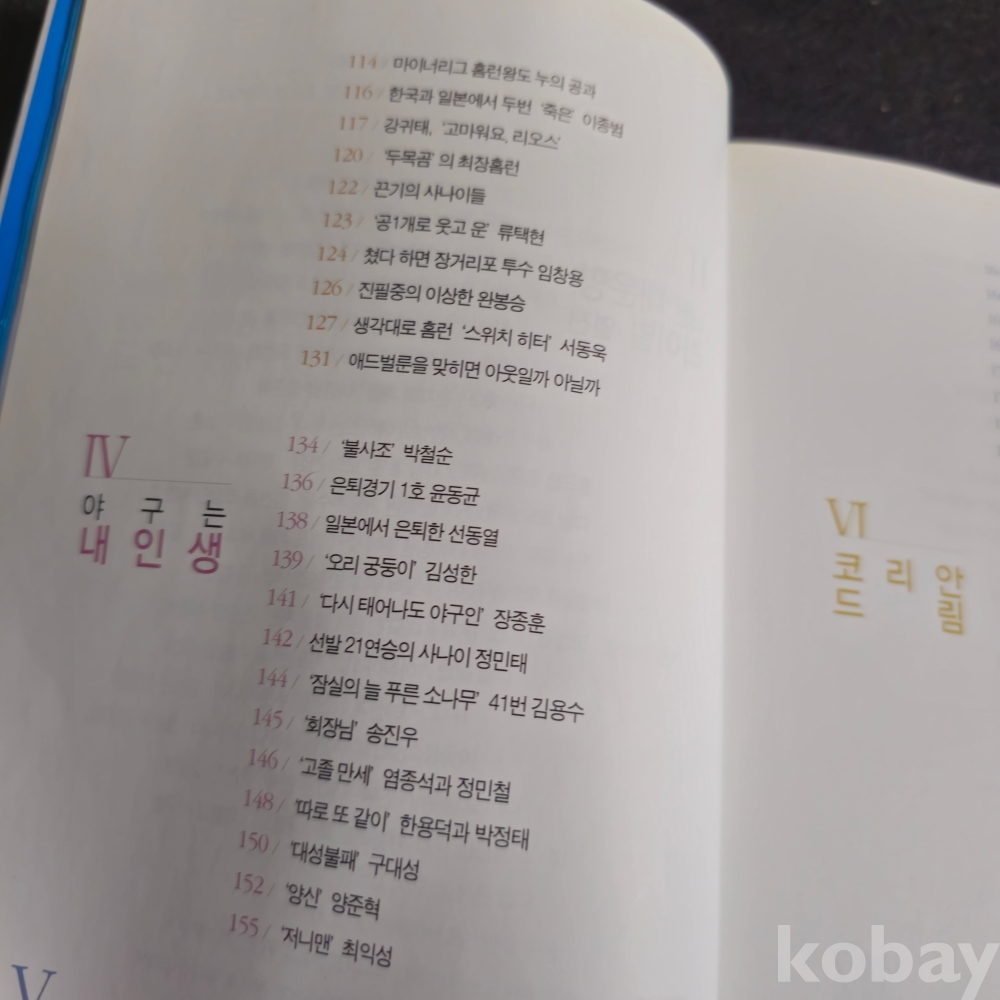 114 / 마이너리그 홈런왕도 누의 공과
116 / 한국과 일본에서 두번 '죽은' 이종범
117 / 강귀태, '고마워요, 리오스'
120 / '두목곰'의 최장홈런
122 / 끈기의 사나이들
123 / '공1개로 웃고 운' 류택현
124 / 쳤다 하면 장거리포 투수 임창용
126 / 진필중의 이상한 완봉승
127 / 생각대로 홈런 '스위치 히터' 서동욱
131 / 애드벌룬을 맞히면 아웃일까 아닐까
IV
야구는
내인생
134 / '불사조' 박철순
136 / 은퇴경기 1호 윤동균
138 / 일본에서 은퇴한 선동열
139 / '오리 궁둥이' 김성한
141 / '다시 태어나도 야구인' 장종훈
142 / 선발 21연승의 사나이 정민태
144 / '잠실의 늘 푸른 소나무' 41번 김용수
145 / '회장님' 송진우
146 / '고졸 만세' 염종석과 정민철
148 / '따로 또 같이' 한용덕과 박정태
150 / '대성불패' 구대성
152 / '양신' 양준혁
155 / '저니맨' 최익성
V
VI
코리안
드림
kobay